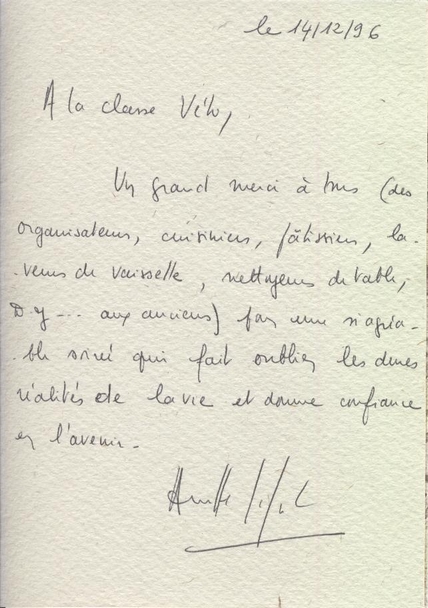 le 14/12/96
A la classe Vélo,
Un grand merci à tous (des
organisateurs, cuisiniers, pâtissiers, la-
-veurs de vaisselle, nettoyeurs de table,
D.J --- aux anciens) pour une si agréa-
-ble soirée qui fait oublier les dures
réalités de la vie et donne confiance
en l'avenir.